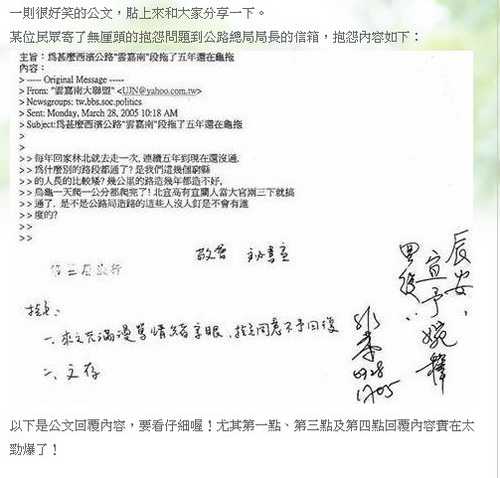 一則很好笑的公文，貼上來和大家分享一下。
某位民眾寄了無厘頭的抱怨問題到公路總局局長的信箱，抱怨內容如下：
主旨：為甚麼西濱公路"雲嘉南"段拖了五年還在龜拖
內容：
> ----- Original Message -----
> From: "雲嘉南大聯盟" <UJN@yahoo.com.tw>
> Newsgroups: tw.bbs.soc.politics
> Sent: Monday, March 28, 2005 10:18 AM
> Subject:為甚麼西濱公路"雲嘉南"段拖了五年還在龜拖
>
>
>> 每年回家林北就去走一次, 連續五年到現在還沒通.
>> 為什麼別的路段都通了? 是我們這幾個窮縣
>> 的人民的比較矮? 幾公里的路造幾年都造不好,
>> 烏龜一天爬一公分都爬完了! 北宜高有宜蘭人當大官兩三下就搞
>> 通了. 是不是公路局造路的這些人沒人釘是不會有進
>> 度的?
>>
>>
>>
敬會
擬:
一、來文充滿漫罵情緒字眼、擬同意不予回覆
二、文存
0328
1705
以下是公文回覆內容，要看仔細喔！尤其第一點、第三點及第四點回覆內容實在太
勁爆了！